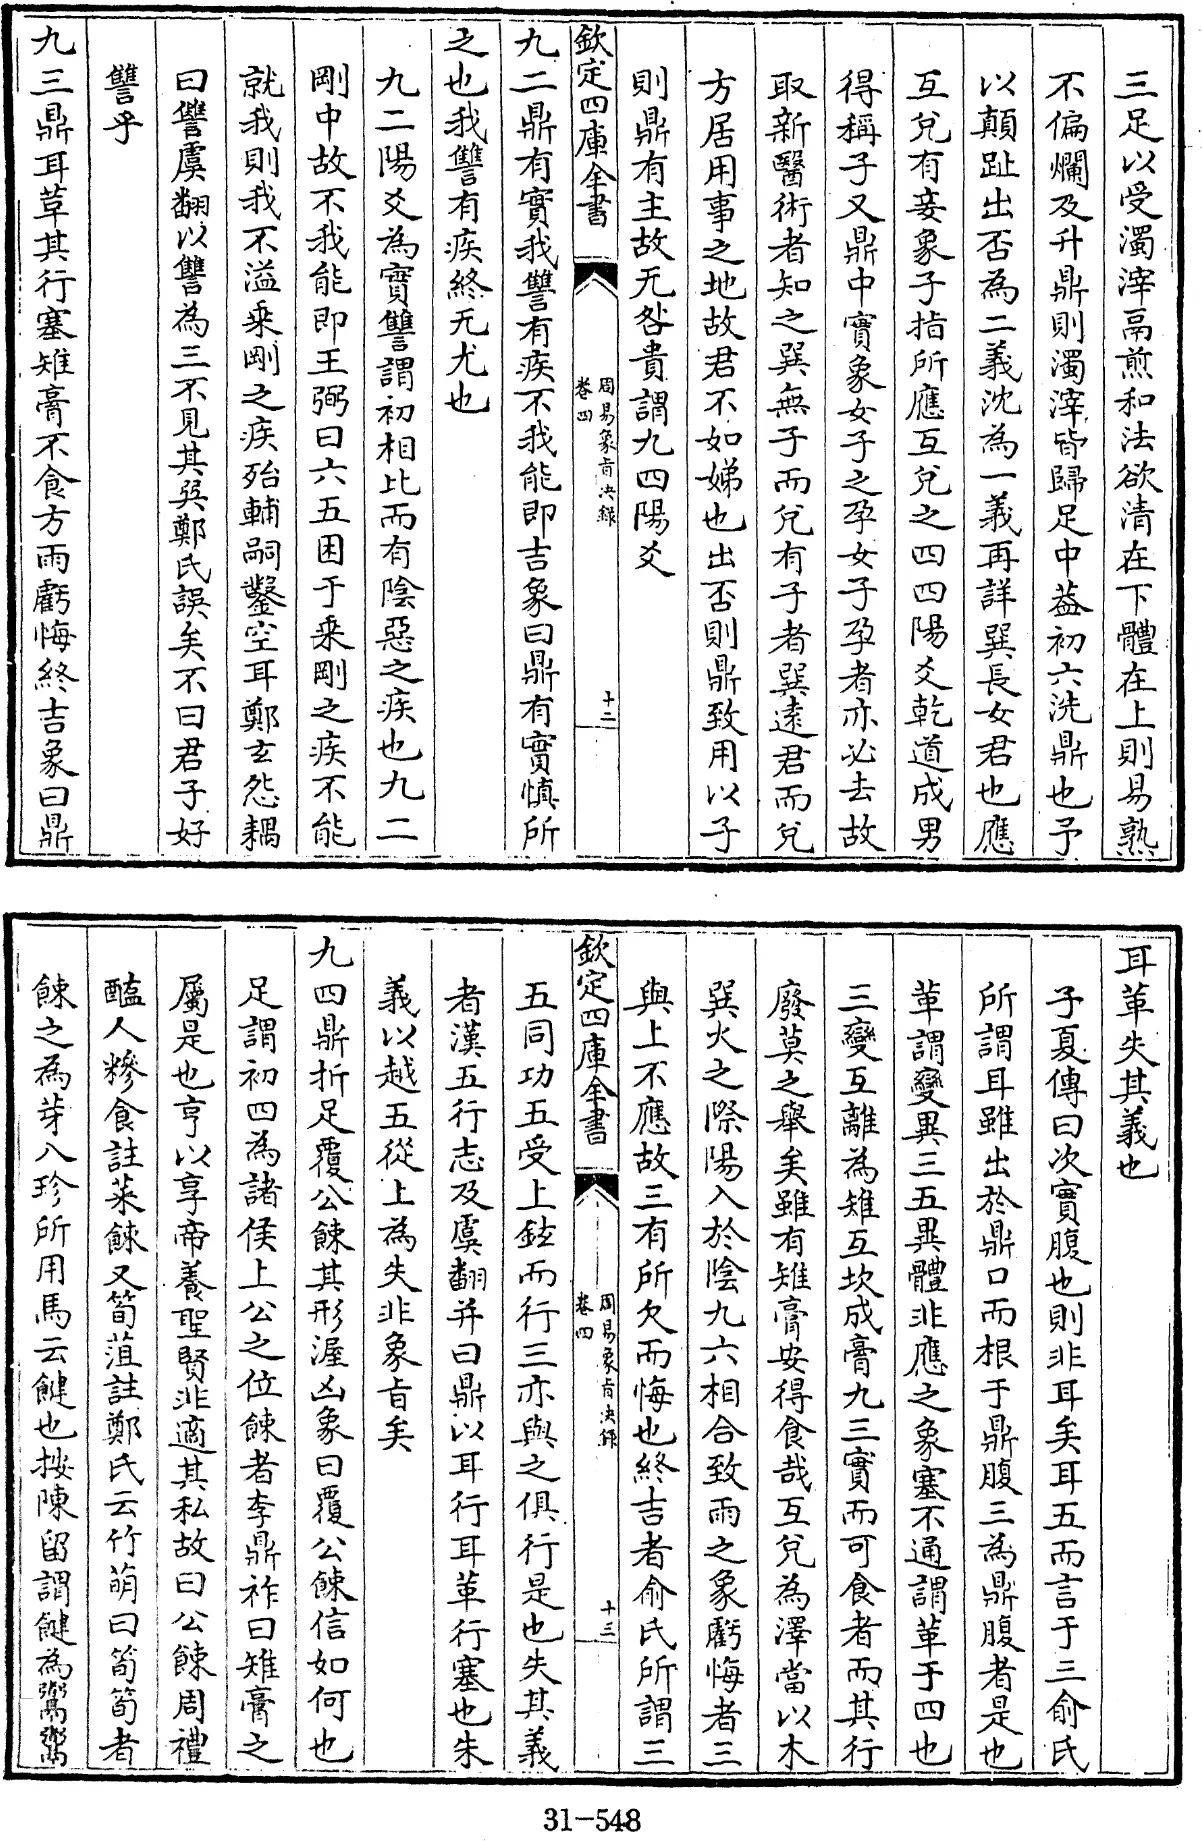 三足以受濁滓鬲煎和法欲清在下體在上則易熟
不偏爛及升鼎則濁滓皆歸足中葢初六洗鼎也予
以顛趾出否為二義沈為一義再詳巽長女君也應
互兌有妾象子指所應互兌之四四陽爻乾道成男
得稱子又鼎中實象女子之孕女子孕者亦必去故
取新醫術者知之巽無子而兌有子者巽遠君而兌
方居用事之地故君不如娣也出否則鼎致用以子
則鼎有主故无咎貴謂九四陽爻
欽定四庫全書
周易象旨決錄
卷四
十二
九二鼎有實我讐有疾不我能即吉象曰鼎有實慎所
之也我讐有疾終无尤也
九二陽爻為實讐謂初相比而有陰惡之疾也九二
剛中故不我能即王弼曰六五困于乘剛之疾不能
就我則我不溢乘剛之疾殆輔嗣鑿空耳鄭玄怨耦
曰讐虞翻以讐為三不見其與鄭氏誤矣不曰君子好
讐乎
九三鼎耳革其行塞雉膏不食方雨虧悔終吉象曰鼎
耳革失其義也
子夏傳曰次實腹也則非耳矣耳五而言于三俞氏
所謂耳雖出於鼎口而根于鼎腹三為鼎腹者是也
革謂變異三五異體非應之象塞不通謂革于四也
三變互離為雉互坎成膏九三實而可食者而其行
廢莫之舉矣雖有雉膏安得食哉互兌為澤當以木
巽火之際陽入於陰九六相合致雨之象虧悔者三
與上不應故三有所欠而悔也終吉者俞氏所謂三
欽定四庫全書
周易象旨決錄
卷四
十三
五同功五受上鉉而行三亦與之俱行是也失其義
者漢五行志及虞翻并曰鼎以耳行耳革行塞也朱
義以越五從上為失非象旨矣
九四鼎折足覆公餗其形渥凶象曰覆公餗信如何也
足謂初四為諸侯上公之位餗者李鼎祚曰雉膏之
屬是也亨以享帝養聖賢非適其私故曰公餗周禮
醢人糝食註菜餗又筍菹註鄭氏云竹萌曰筍筍者
餗之為芽八珍所用馬云饘也按陳留謂饘為鬻鬻
31-548